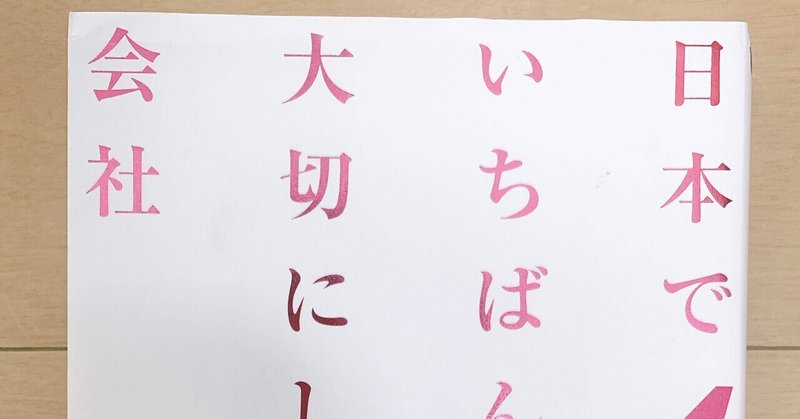 日本で
いちばん
大切にし
会社